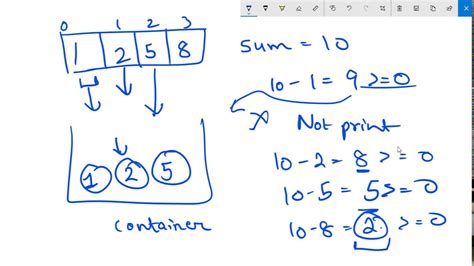 0 1 2 3
1 2 5 8
1 2 5
container
sum = 10
10 - 1 = 9 >= 0
Not print
10 - 2 = 8 >= 0
10 - 5 = 5 >= 0
10 - 8 = 2 >= 0